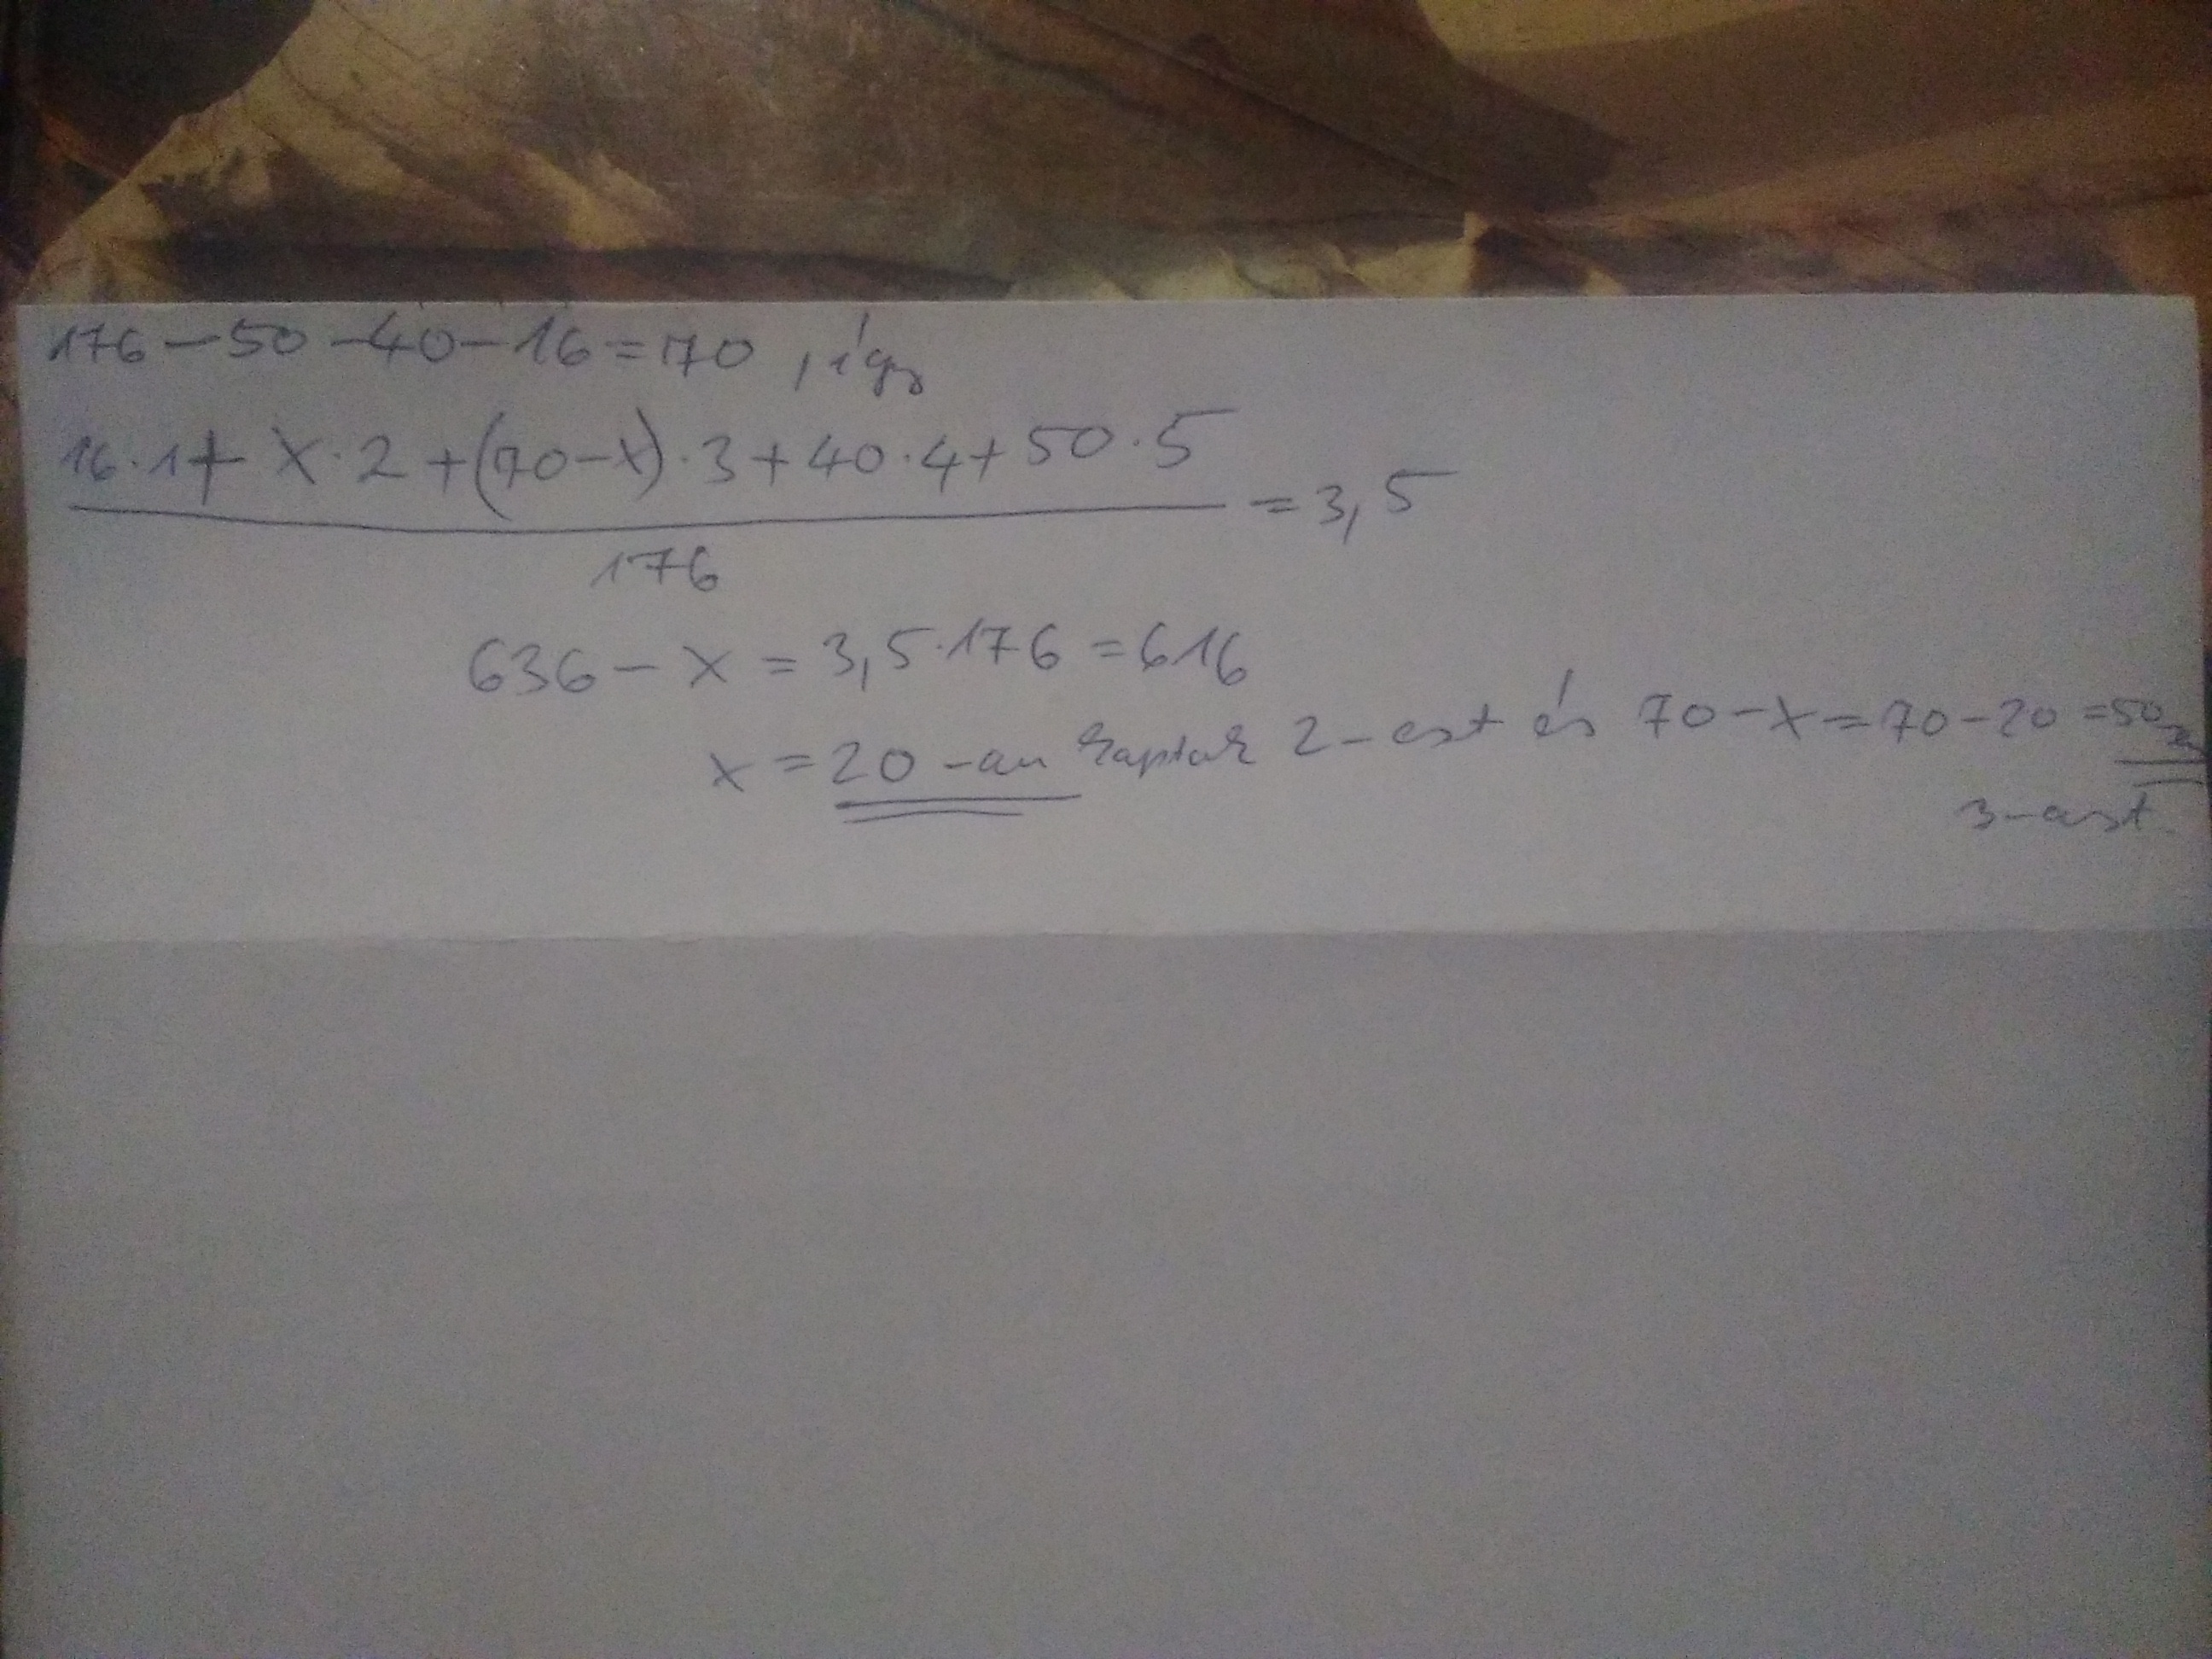 176-50-40-16=70, így
16·1+x·2+(70-x)·3+40·4+50·5
= 3,5
176
636-x=3,5·176=616
x=20-an kaptak 2-est és 70-x=70-20=50en
3-ast.